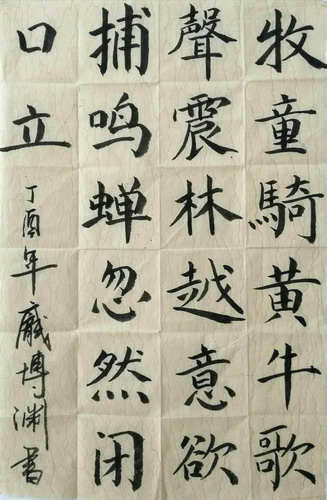 牧童騎黄牛歌
聲震林越意欲
捕鸣蝉忽然闭
口立
丁酉年 博渊書